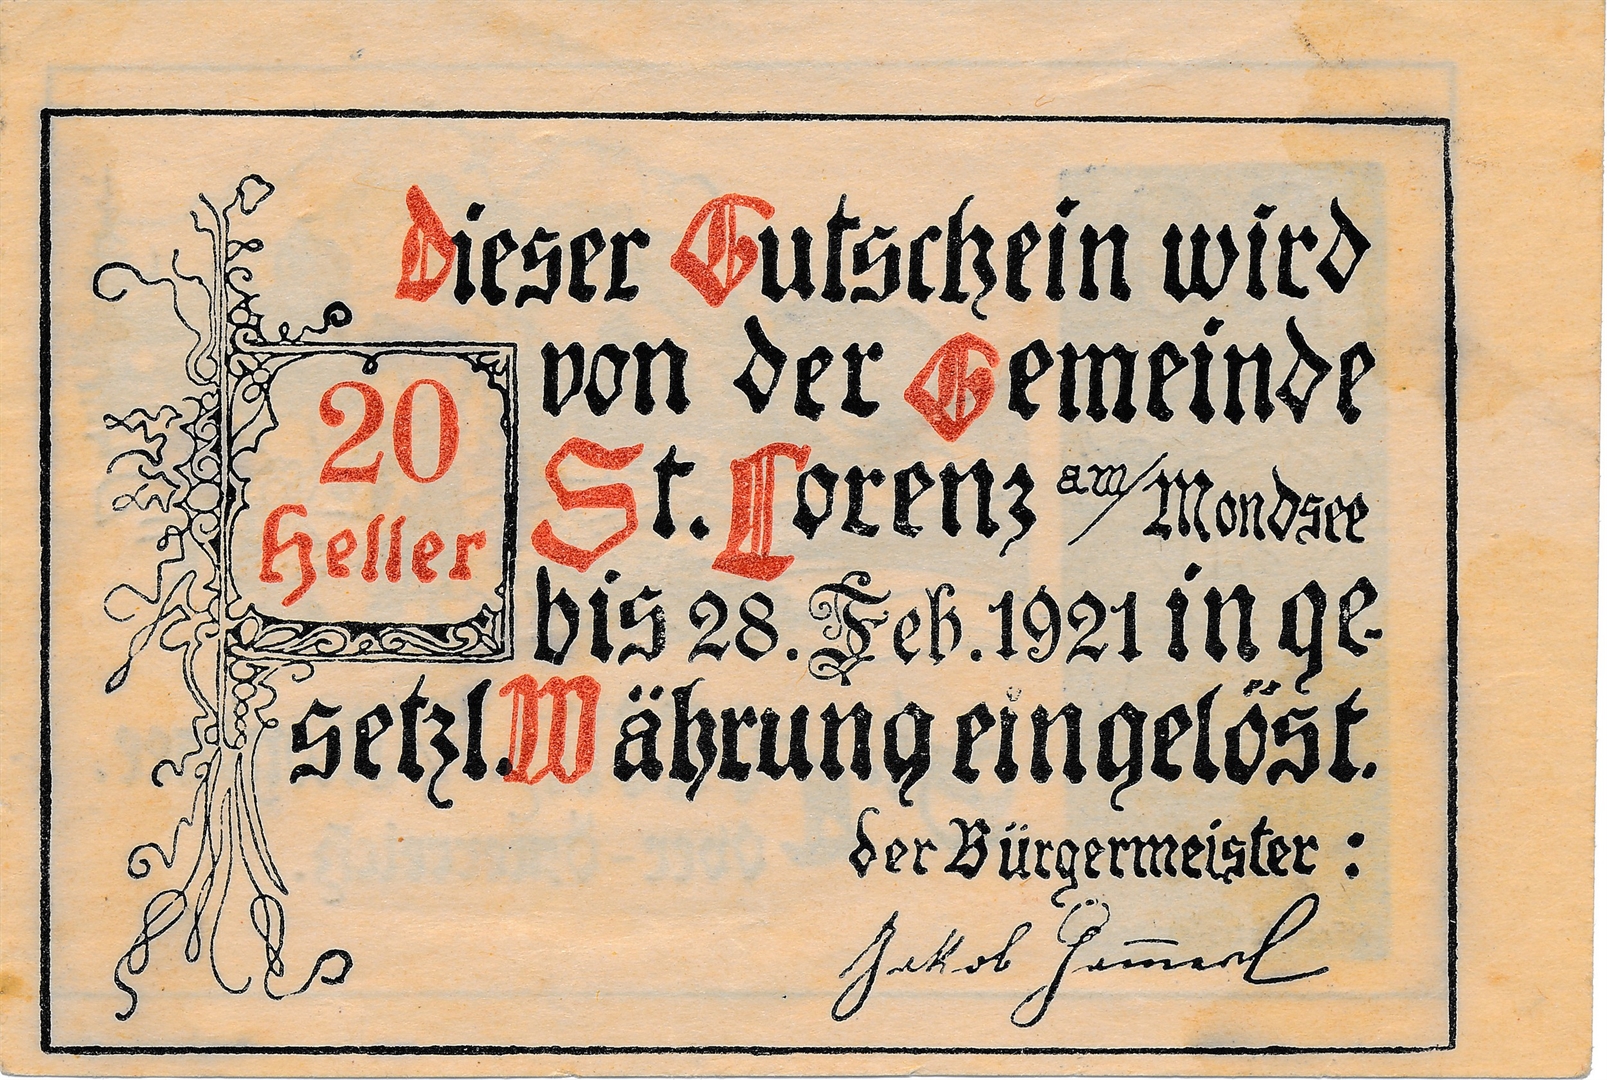 Dieser Gutschein wird
von der Gemeinde
20
Heller
St. Lorenz am/Mondsee
bis 28. Feb. 1921 in ge-
setzl. Währung eingelöst.
der Bürgermeister:
Jakob